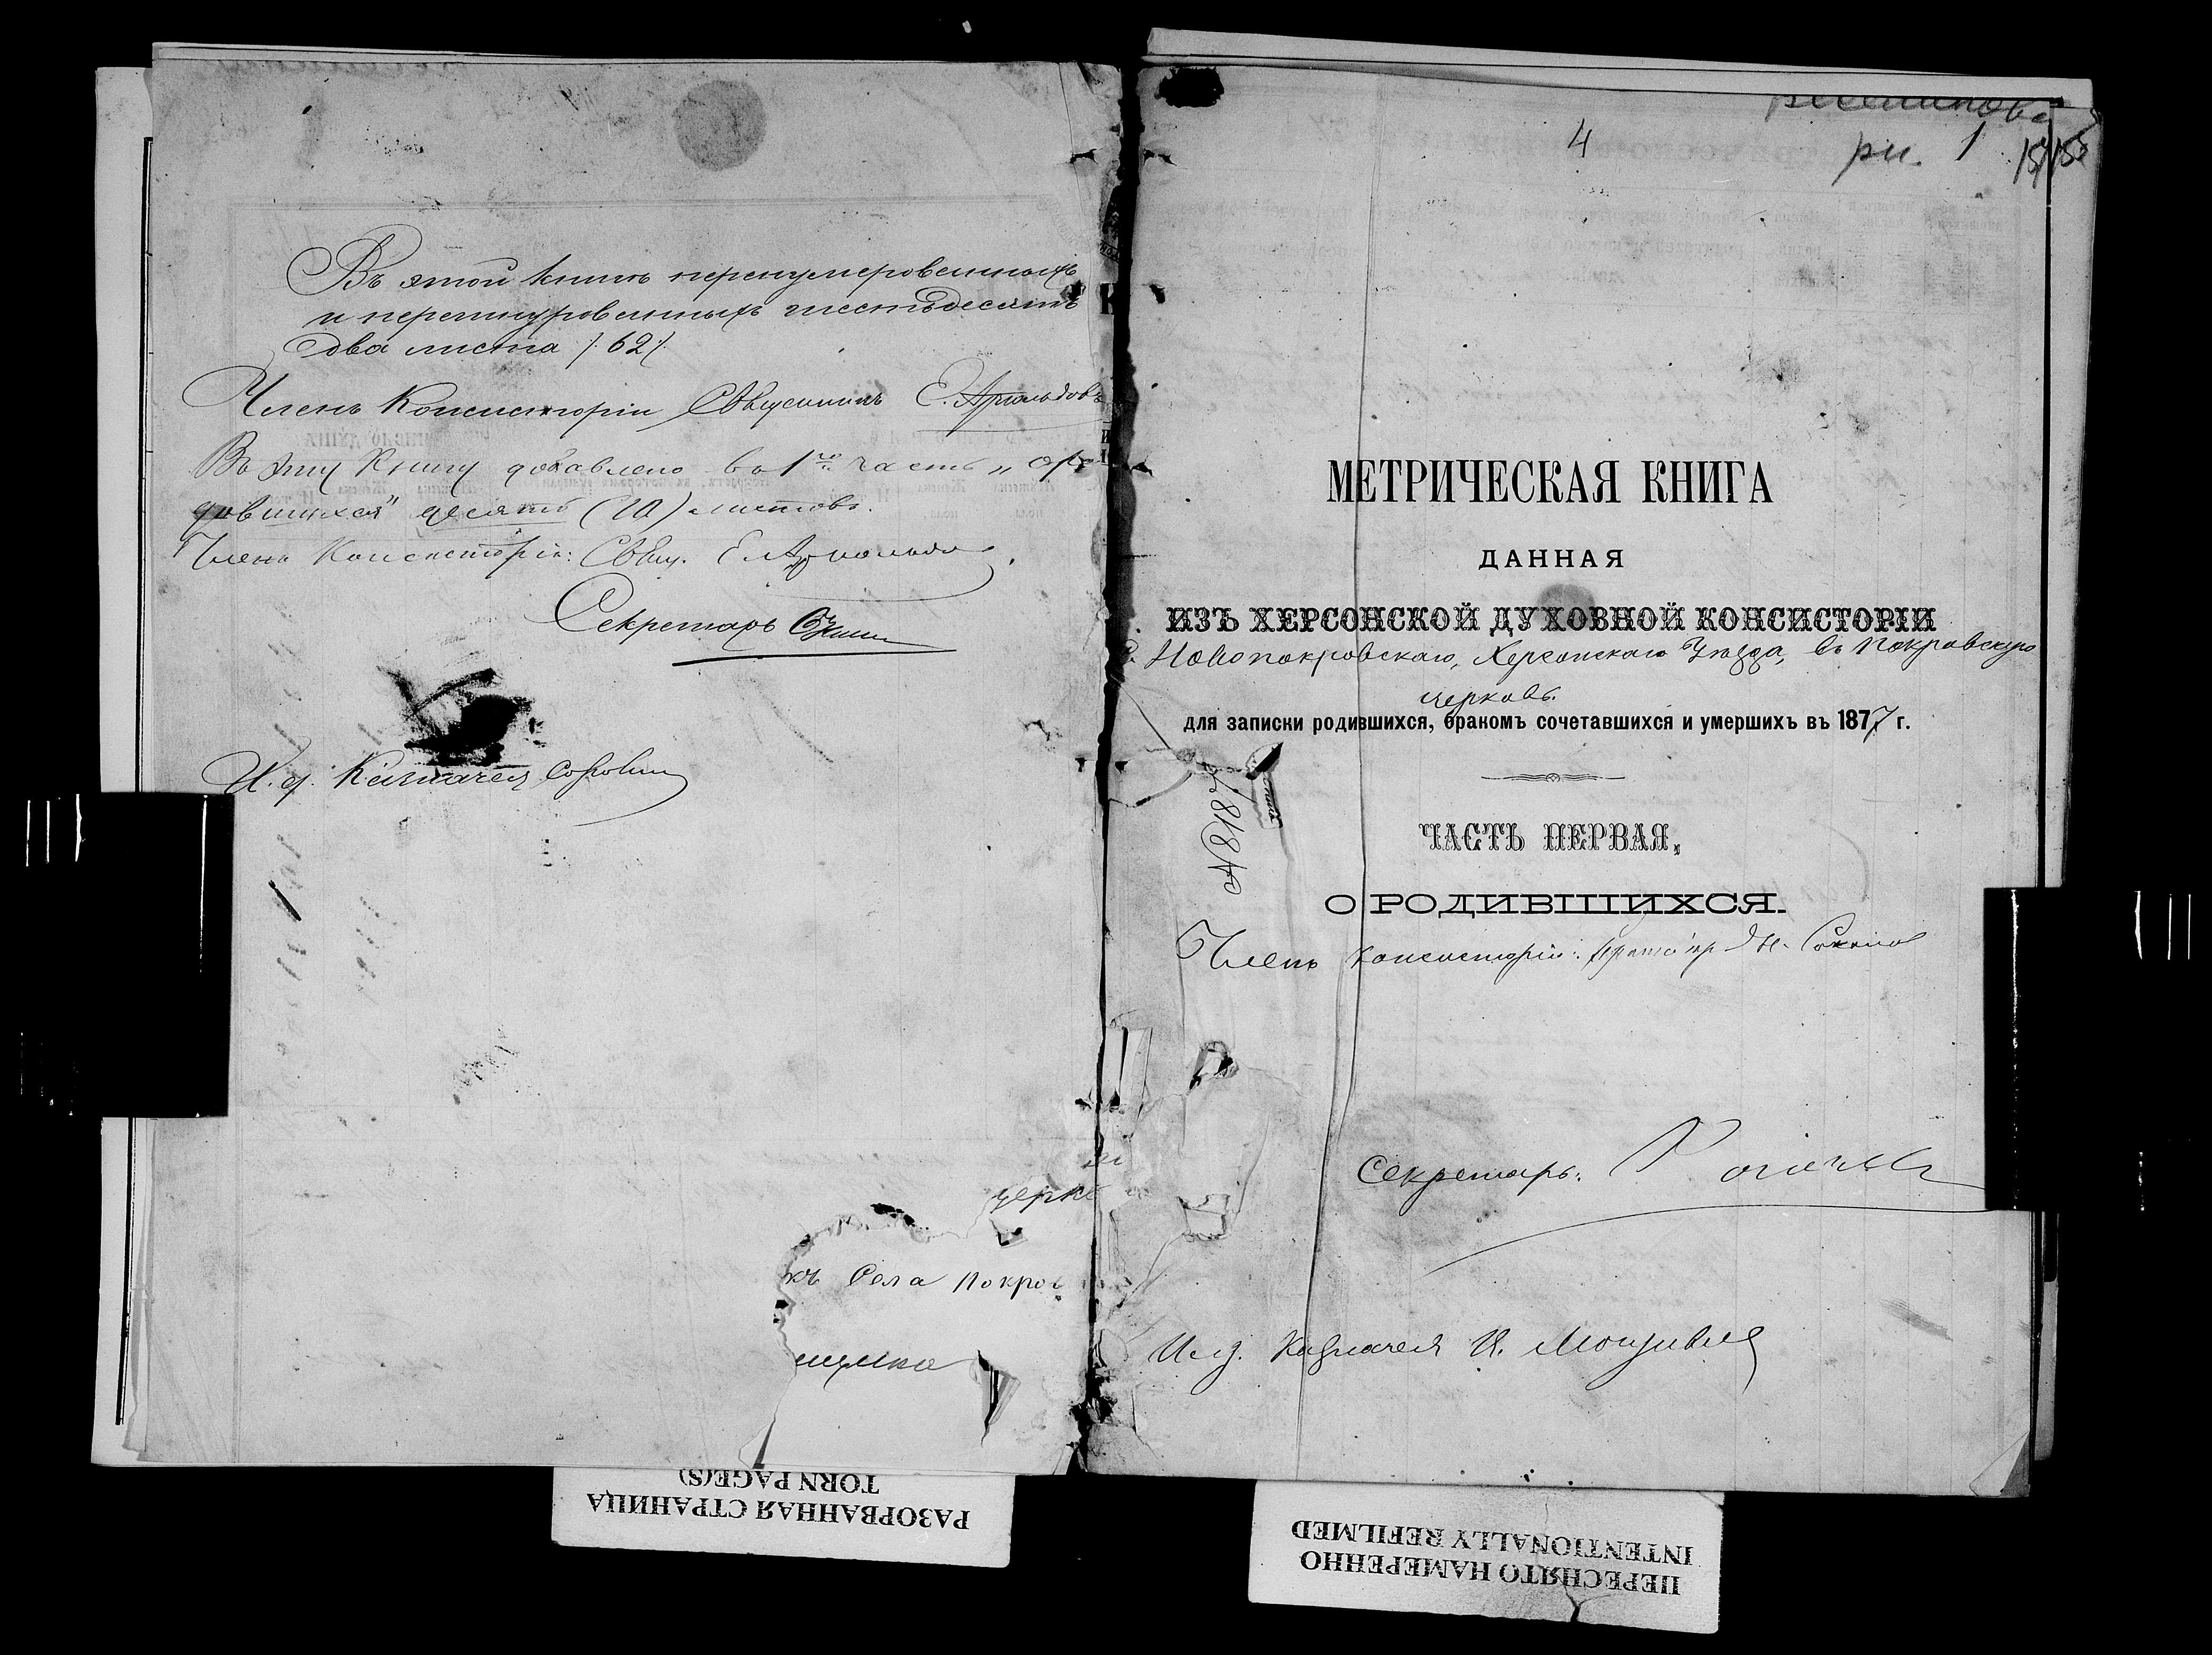 Въ этой книгѣ перенумерованныхъ
и перешнурованныхъ шестьдесятъ
два листа /:62:/
Членъ Консисторіи Священникъ Е. Арнольдовъ
Въ эту Книгу добавлено въ 1ую часть „о ро
дившихся" десять (10) листовъ.
Членъ Консисторіи: Свящ. Е. Арнольдовъ
Секретарь
И. д. Казначея
церкв
къ Села Покров
4
рн. 1
МЕТРИЧЕСКАЯ КНИГА
ДАННАЯ
ИЗЪ ХЕРСОНСКОЙ ДУХОВНОЙ КОНСИСТОРІИ
С. Новопокровскаго, Херсонскаго Уѣзда, въ Покровскую
церковь.
для записки родившихся, бракомъ сочетавшихся и умершихъ въ 1877 г.
№ 8187
ЧАСТЬ ПЕРВАЯ,
О РОДИВШИХСЯ.
Членъ Консисторіи:
Секретарь:
И. д. Казначея И.
РАЗОРВАННАЯ СТРАНИЦА
TORN PAGE(S)
ПЕРЕСНЯТО НАМЕРЕННО
INTENTIONALLY REFILMED